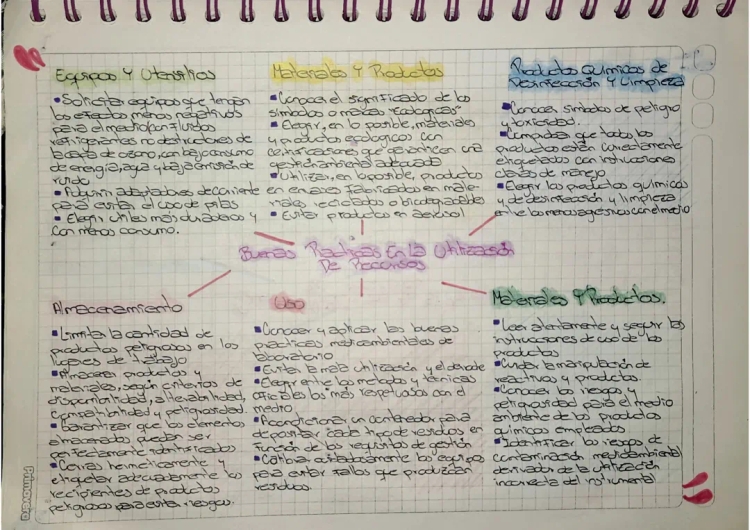 Equipos Y Utensilios
▪ Solicitar equipos que tengan
los efectos menos negativos
para el medio (con fluidos
refrigerantes no destructores de
la capa de ozono, con bajo consumo
de energía, agua y baja emisión de
ruido
▪ Adquirir adaptadores de corriente
para evitar el uso de pilas
▪ Elegir útiles más duraderos y
con menos consumo.
Materiales Y Productos
▪ Conocer el significado de los
símbolos o marcas "Ecológicas"
▪ Elegir, en lo posible, materiales
y productos ecologicos con
certificaciones que garanticen una
gestión ambiental adecuada
▪ Utilizar, en lo posible, productos
en envases fabricados en mate-
riales reciclados o biodegradables
▪ Evitar productos en aerosol
Productos Químicos de
Desinfección Y Limpieza
▪ Conocer símbolos de peligro
y toxicidad.
▪ Comprobar que todos los
productos están correctamente
etiquetados con instrucciones
claras de manejo
▪ Elegir los productos químicos
y de desinfección y limpieza
entre los menos agresivos con el medio
Buenas Practicas En La Utilización
De Recursos
Almacenamiento
▪ Limitar la cantidad de
productos peligrosos en los
lugares de trabajo
▪ Almacenar productos y
materiales, según criterios de
disponibilidad, alterabilidad,
compatibilidad y peligrosidad.
▪ Garantizar que los elementos
almacenados puedan ser
perfectamente identificados
▪ Cerrar herméticamente y
etiquetar adecuadamente los
recipientes de productos
peligrosos para evitar riesgos.
Uso
▪ Conocer y aplicar las buenas
practicas medioambientales de
laboratorio
▪ Evitar la mala utilización y el derroche
▪ Elegir entre los metodos y técnicas
oficiales los más respetuosos con el
medio
▪ Acondicionar un contenedor para
depositar cada tipo de residuos en
Función de los requisitos de gestión
▪ Calibrar cuidadosamente los equipos
para evitar fallos que produzcan
residuos.
Materiales Y Productos.
▪ Leer atentamente y seguir las
instrucciones de uso de los
productos
▪ Cuidar la manipulación de
reactivos y productos
▪ Conocer los riesgos y
peligrosidad para el medio
ambiente de los productos
químicos empleados
▪ Identificar los riesgos de
contaminación medioambiental
derivados de la utilización
incorrecta del instrumental